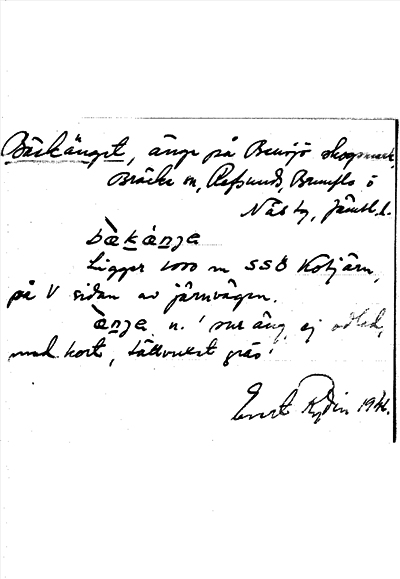 Bäckänget, änge på Bensjö skogsmark,
Bräcke sn, Refsund, Brunflo o
Näs tg, Jämtl. l.
bàkánʒe
Ligger 1000 m SSÖ Kotjärn,
på V sidan av järnvägen.
ànʒe n. 'sur äng, ej odlad,
med kort, tättvuxet gräs'
Ernst Rydin 1941.